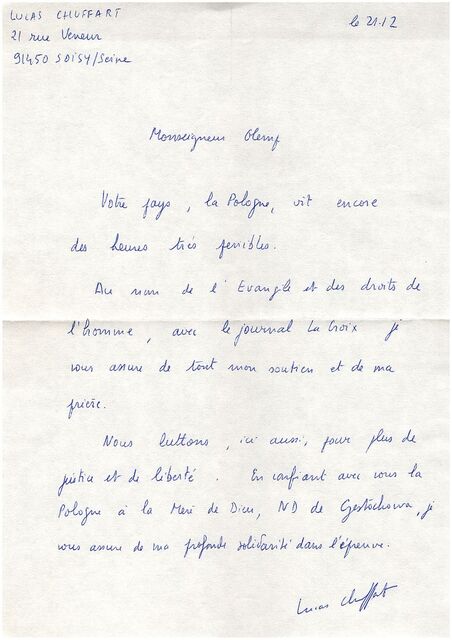 LUCAS CHUFFART
21 rue Veneur
91450 SOISY/Seine
le 21.12
Monseigneur Glemp
Votre pays, la Pologne, vit encore
des heures très pénibles.
Au nom de l'Evangile et des droits de
l'homme, avec le journal La Croix je
vous assure de tout mon soutien et de ma
prière.
Nous luttons, ici aussi, pour plus de
justice et de liberté. En confiant avec vous la
Pologne à la Mère de Dieu, ND de Czestochowa, je
vous assure de ma profonde solidarité dans l'épreuve.
Lucas Chuffart